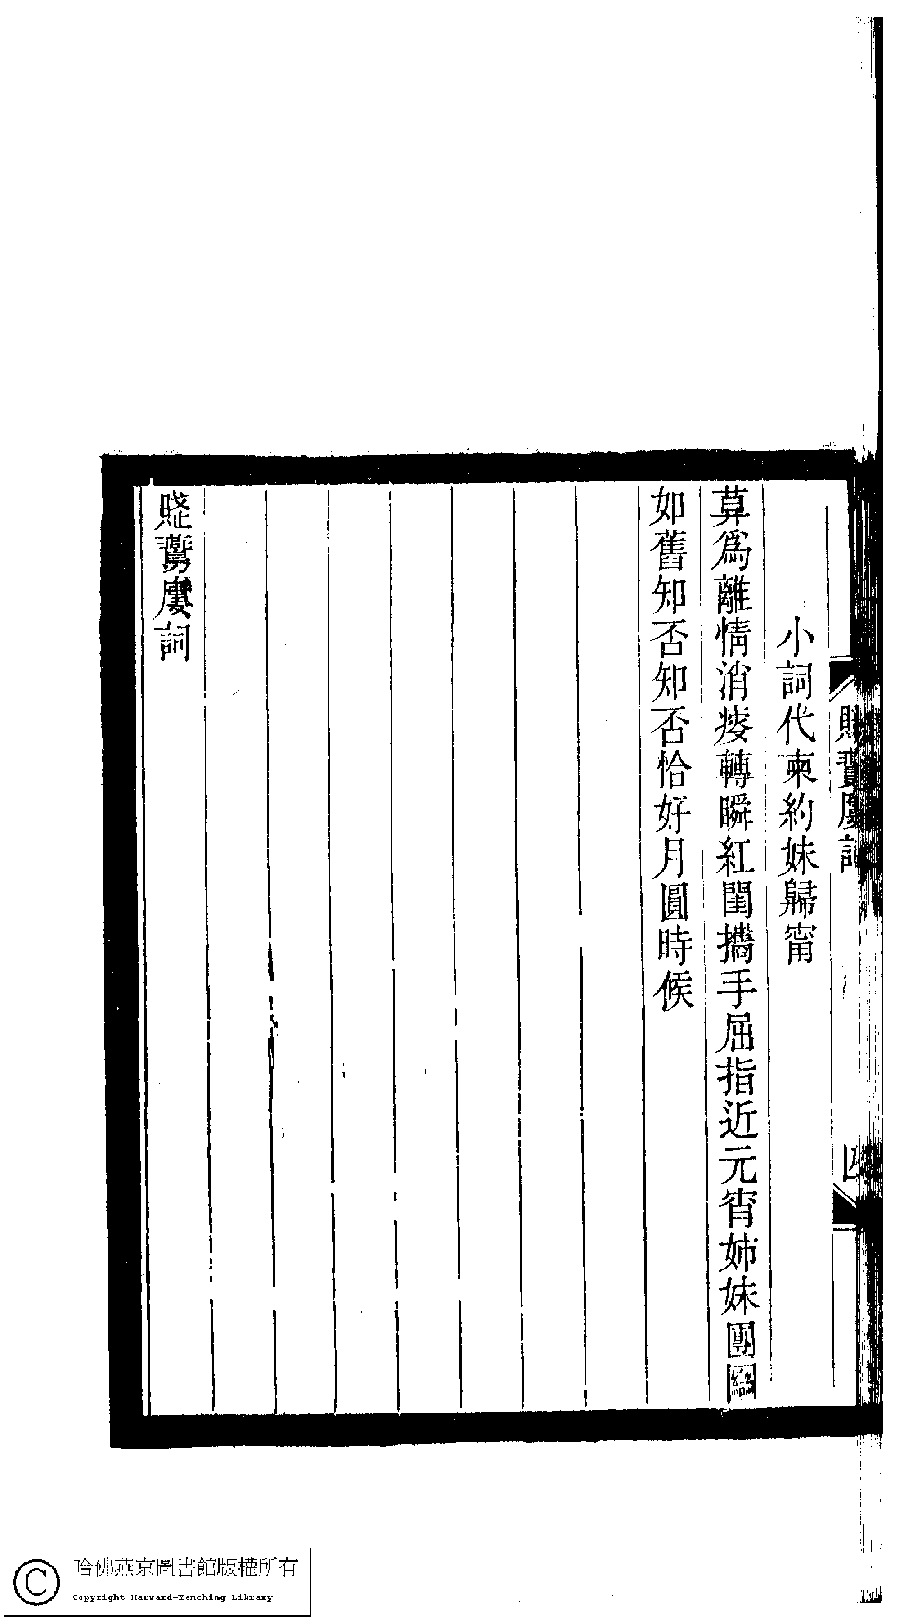 廔詞
四
小詞代柬約妹歸甯
算爲離情消瘦轉瞬紅閨攜手屈指近元宵姊妹團圞
如舊知否知否恰好月圓時候
廔詞
哈佛燕京圖書館版權所有
Copyright Harvard-Yenching Library